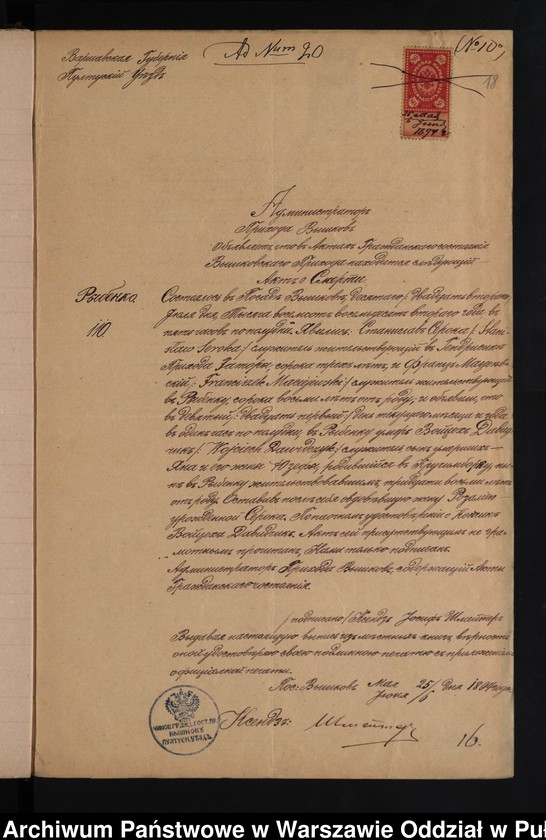 Варшавская Губернія
Пултускій Уѣздъ
Ad Num 20
(No 10)
18
25 Мая
1894
Администраторъ
Прихода Вышковъ
Объявляетъ что въ Актахъ Гражданскаго состоянія
Вышковскаго Прихода находится слѣдующій
Актъ о Смерти
Рыбенко
110.
Состоялось въ Посадѣ Вышковѣ, Десятаго /Двадцать втораго/
Іюля дня, Тысяча восемьсотъ восемьдесятъ втораго года въ
пять часовъ по полудни. Явились: Станиславъ Серока /: Stani-
sław Soroka :/ служитель жительствующій въ
Прихода Заторы, сорока трехъ лѣтъ, и Францъ Мацеев-
скій /: Franciszek Maciejewski :/ служитель жительствующій
въ Рыбенку, сорока восьми лѣтъ отъ роду; и объявили, что
въ Девятый /Двадцать первый/ день текущаго мѣсяца и года
въ одинъ часъ по полудни, въ Рыбенку умеръ Войцехъ Давид-
чикъ /: Wojciech Dawidczyk :/ служитель сынъ умершихъ
Яна и его жены Юзефы, родившійся въ
въ Рыбенку жительствовавшій, тридцати восьми лѣтъ
отъ роду. Оставивъ послѣ себя овдовѣвшую жену Розалію
урожденной Серокъ. По настоятельномъ удостовѣреніи о кончинѣ
Войцеха Давидчика. Актъ сей присутствующимъ не гра-
мотнымъ прочитанъ, Нами только подписанъ.
Администраторъ Прихода Вышковъ, содержащій Акты
Гражданскаго состоянія.
/подписано/ Ксендзъ Іосифъ Шмейтеръ
Выдавая настоящую выпись изъ мѣстныхъ книгъ вѣрность
оной удостовѣряю своею подписью и печатью съ приложеніемъ
официальной печати.
Пос: Вышковъ Мая 25/ Іюня /6 Дня 1894 года
Ксендзъ: Шмейтеръ
16.
ЧИНОВ. ГРАЖД. СОСТ. ПР.
ВЫШКОВЪ
ПУЛТУСК. УѢЗДА
Archiwum Państwowe w Warszawie Oddział w Puł